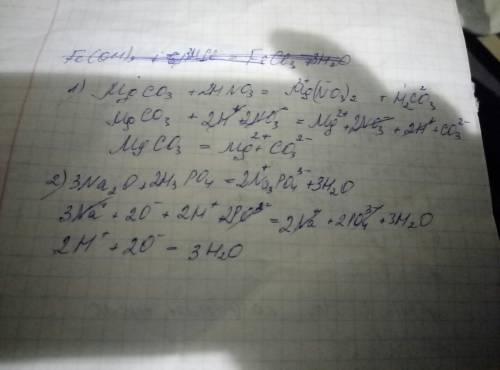 Fe(OH)3 + 3HCl = FeCl3 + 3H2O
1) MgCO3 + 2HNO3 = Mg(NO3)2 + H2CO3
MgCO3 + 2H+ 2NO3- = Mg2+ + 2NO3- + 2H+ + CO3 2-
MgCO3 = Mg2+ + CO3 2-
2) 3Na2O + 2H3PO4 = 2Na3PO4 + 3H2O
3Na+ + 2O- + 2H+ 2PO4 3- = 2Na+ + 2PO4 3- + 3H2O
2H+ + 2O- = 3H2O